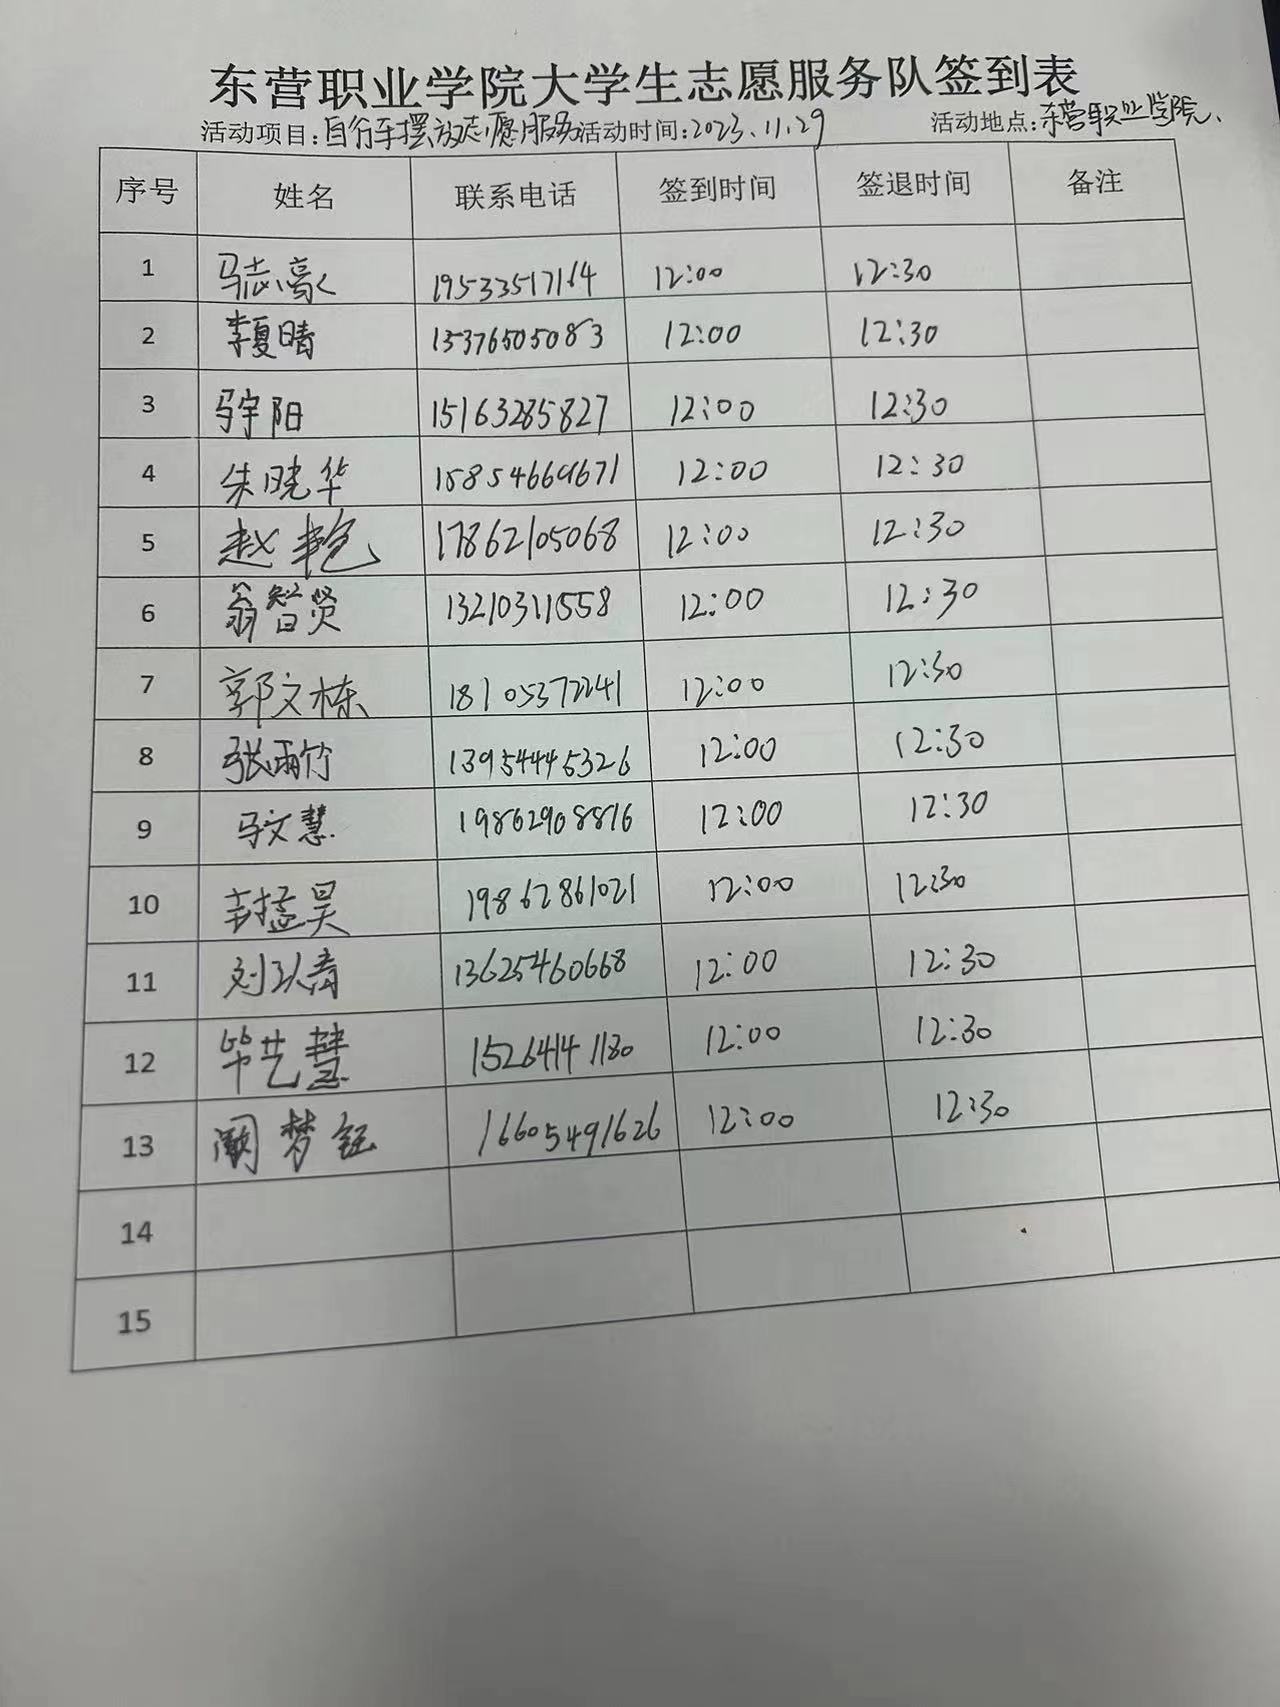 东营职业学院大学生志愿服务队签到表
活动项目:自行车摆放志愿服务 活动时间:2023.11.29 活动地点:东营职业学院、
序号 姓名 联系电话 签到时间 签退时间 备注
1 马志豪 19533517164 12:00 12:30
2 李夏晴 15376505083 12:00 12:30
3 马宇阳 15163285827 12:00 12:30
4 朱晓华 15854669671 12:00 12:30
5 赵艳 17862105068 12:00 12:30
6 翁智贤 13210311558 12:00 12:30
7 郭文栋 18105372241 12:00 12:30
8 张雨竹 13954445326 12:00 12:30
9 马文慧 19862908816 12:00 12:30
10 封孟昊 19862861021 12:00 12:30
11 刘 青 13625460668 12:00 12:30
12 毕艺慧 15264141180 12:00 12:30
13 阚梦钰 16605491626 12:00 12:30
14
15